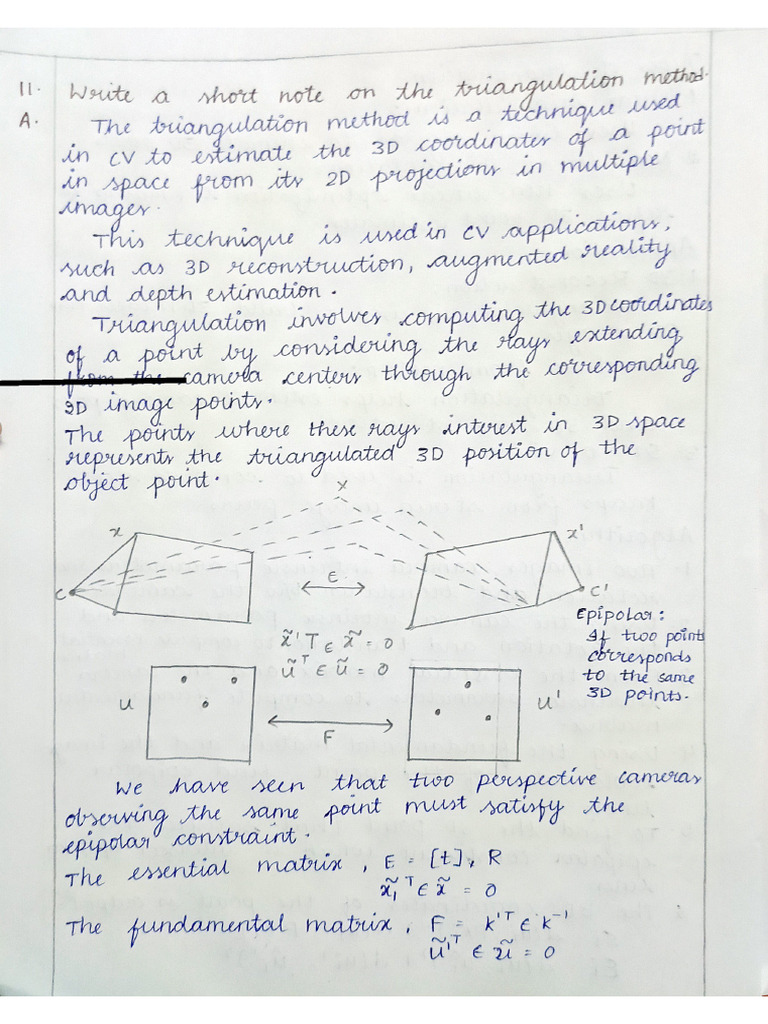 11. Write a short note on the triangulation method.
A. The triangulation method is a technique used
in CV to estimate the 3D coordinates of a point
in space from its 2D projections in multiple
images.
This technique is used in CV applications,
such as 3D reconstruction, augmented reality
and depth estimation.
Triangulation involves computing the 3D coordinates
of a point by considering the rays extending
from the camera centers through the corresponding
3D image points.
The points where these rays interest in 3D space
represents the triangulated 3D position of the
object point.
X
x
x'
C
E
C'
x̃' T ε x̃ = 0
ũ'ᵀ ε ũ = 0
Epipolar:
If two point
corresponds
to the same
3D points.
u
u'
F
We have seen that two perspective cameras
observing the same point must satisfy the
epipolar constraint.
The essential matrix, E = [t], R
x̃₁ᵀ ε x̃ = 0
The fundamental matrix, F = k'ᵀ ε k⁻¹
ũ'ᵀ ε ũ = 0